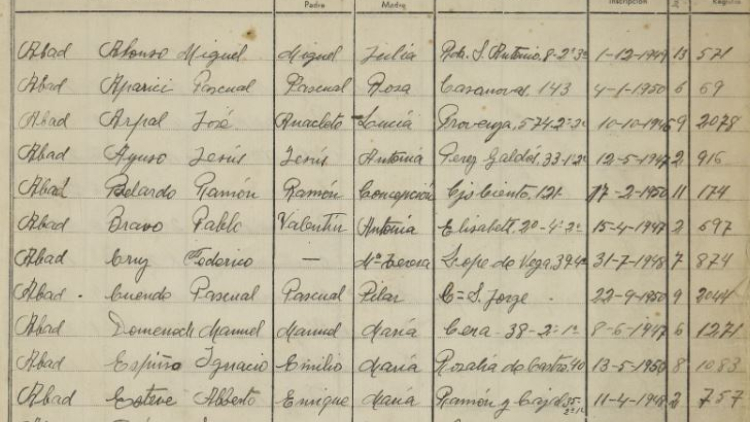 Padre Madre Inscripción
Abad Afonso Miguel Miguel Julia Rda. S. Antonio, 8-2º3ª 1-12-1949 13 571
Abad Aparici Pascual Pascual Rosa Casanovas, 143 4-1-1950 6 69
Abad Arpal José Anacleto Lucía Provenza, 574-2º-3ª 10-10-1946 9 2078
Abad Ayuso Jesús Jesús Antonia Perez Galdós, 33-1º2ª 12-5-1947 2 916
Abad Belardo Ramón Ramón Concepción Cjo Ciento, 121- 17-2-1950 11 174
Abad Bravo Pablo Valentín Antonia Elisabeth, 20-4º-2ª 15-4-1947 2 697
Abad Cruz Federico — Mª Teresa Lope de Vega, 31-7-1948 7 874
Abad. Cuendo Pascual Pascual Pilar C= S. Jorge. 22-9-1950 9 2044
Abad Domenech Manuel Manuel María Cera- 38-2º-1ª 8-6-1947 6 1271
Abad Espiño Ignacio Emilio María Rosalía de Castro, 40 13-5-1950 8 1083
Abad Esteve Alberto Enrique María Ramón y Cajal, 35- 11-4-1948 2 757
2º1ª